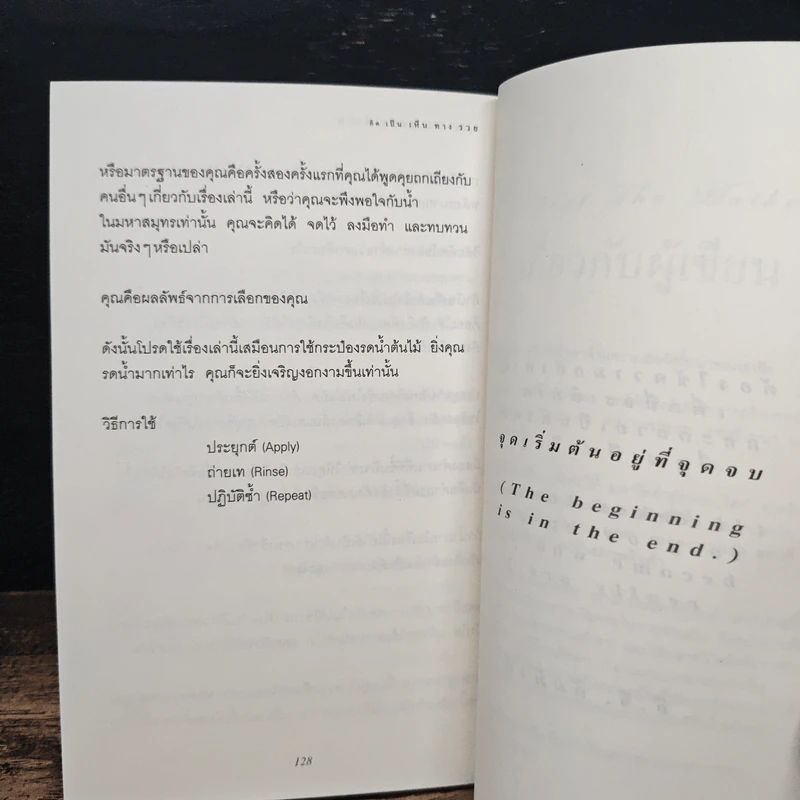 คิด เป็น เห็น ทาง รวย
หรือมาตรฐานของคุณคือครั้งสองครั้งแรกที่คุณได้พูดคุยถกเถียงกับ
คนอื่นๆ เกี่ยวกับเรื่องเล่านี้ หรือว่าคุณจะพึงพอใจกับน้ำ
ในมหาสมุทรเท่านั้น คุณจะคิดได้ จดไว้ ลงมือทำ และทบทวน
มันจริงๆ หรือเปล่า
คุณคือผลลัพธ์จากการเลือกของคุณ
ดังนั้นโปรดใช้เรื่องเล่านี้เสมือนการใช้กระป๋องรดน้ำต้นไม้ ยิ่งคุณ
รดน้ำมากเท่าไร คุณก็จะยิ่งเจริญงอกงามขึ้นเท่านั้น
วิธีการใช้
ประยุกต์ (Apply)
ถ่ายเท (Rinse)
ปฏิบัติซ้ำ (Repeat)
128
จุดเริ่มต้นอยู่ที่จุดจบ
(The beginning
is in the end.)